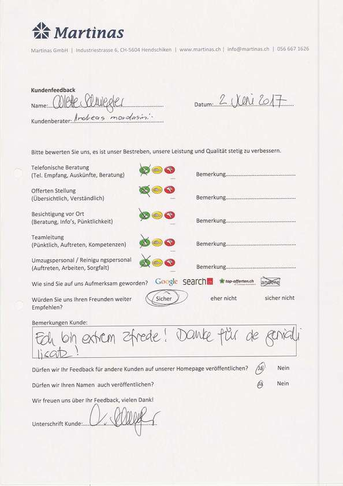 Martinas
Martinas GmbH | Industriestrasse 6, CH-5604 Hendschiken | www.martinas.ch | info@martinas.ch | 056 667 3626
Kundenfeedback
Name:
Datum: 2 Juni 2017
Kundenberater: Andreas
Bitte bewerten Sie uns, es ist unser Bestreben, unsere Leistung und Qualität stetig zu verbessern.
Telefonische Beratung
(Tel. Empfang, Auskünfte, Beratung) Bemerkung
Offerten Stellung
(Übersichtlich, Verständlich) Bemerkung
Besichtigung vor Ort
(Beratung, Info's, Pünktlichkeit) Bemerkung
Teamleitung
(Pünktlich, Auftreten, Kompetenzen) Bemerkung
Umzugspersonal / Reinigungspersonal
(Auftreten, Arbeiten, Sorgfalt) Bemerkung
Wie sind Sie auf uns Aufmerksam geworden? Google search top-offerten.ch
Würden Sie uns Ihren Freunden weiter Sicher eher nicht sicher nicht
Empfehlen?
Bemerkungen Kunde:
Ech bin extrem zfrede! Danke für de geniali
isatz!
Dürfen wir Ihr Feedback für andere Kunden auf unserer Homepage veröffentlichen? Ja Nein
Dürfen wir Ihren Namen auch veröffentlichen? Ja Nein
Wir freuen uns über Ihr Feedback, vielen Dank!
Unterschrift Kunde: